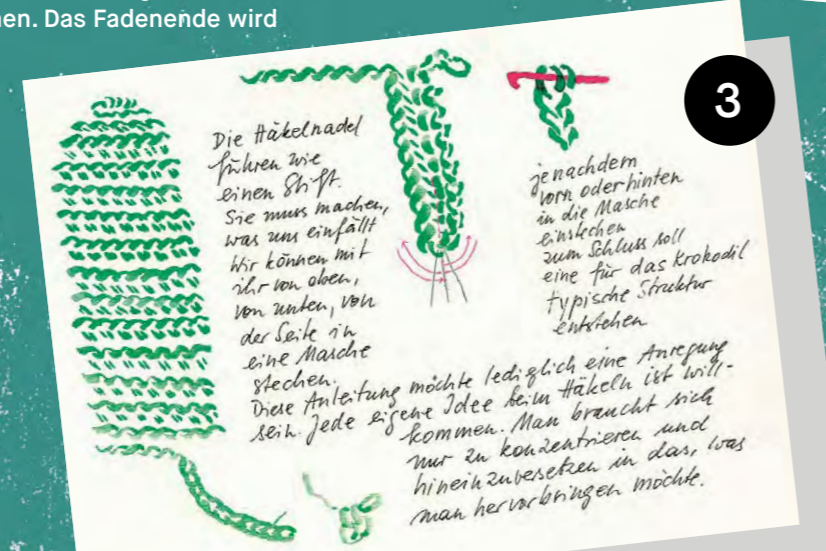 en. Das Fadenende wird
3
Die Häkelnadel
führen wie
einen Stift.
Sie muss machen,
was uns einfällt
Wir können mit
ihr von oben,
von unten, von
der Seite in
eine Masche
stechen.
je nachdem
vorn oder hinten
in die Masche
einstechen
zum Schluss soll
eine für das Krokodil
typische Struktur
entstehen
Diese Anleitung möchte lediglich eine Anregung
sein. Jede eigene Idee beim Häkeln ist will-
kommen. Man braucht sich
nur zu konzentrieren und
hineinzuversetzen in das, was
man hervorbringen möchte.